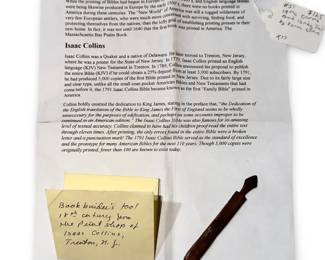 While the printing of Bibles had begun in Europe
were being likely produced in Europe by the early and English language Bibles
America since the "New World" of , there was no such printed in
very few European settlers, who were much more concerned with surviving, finding food, and
protecting themselves from the natives, than the lofty goal of establishing printing presses in their
new home. In fact, it was not until 1640 that the first book was printed in America. The
Massachusetts Bay Psalm Book.
Isaac Collins
Isaac Collins was a Quaker and a native of Delaware, later moved to Trenton, New Jersey,
where he was a printer for the State of New Jersey. In 1791, Isaac Collins printed an English
(KJV) New Testament in Trenton. In 1789, Collins announced his proposal to publish
the entire Bible (KJV) if he could obtain a 25% deposit from at least 3,000 subscribers. By 1791,
he had produced 5,000 copies of the first Bible printed in New Jersey. Due to its fairly large size
and clear type, unlike all the small over-pocket American Bibles and New Testaments that had
come before it, the 1791 Isaac Collins Bible became known as the first "Family Bible" printed in
America.
Collins boldly omitted the dedication to King James, stating in the preface that, "the Dedication of
the English translation of the Bible to King James the First of England seems to be wholly
unnecessary for the purposes of edification, and perhaps on some accounts improper to be
continued in an American edition." The Isaac Collins Bible was also famous for its amazing
level of textual accuracy. Collins claimed to have had his children proof-read the entire text
through eleven times. After printing, the only errors found in the entire Bible were a broken
letter and a punctuation mark. The 1791 Isaac Collins Bible served as the standard of excellence
and the prototype for many American Bibles for the next 110 years. Though 5,000 copies were
originally printed, fewer than 100 are known to exist today.
Book binder's tool
18th century from
the print shop of
Isaac Collins,
Trenton, N.J.